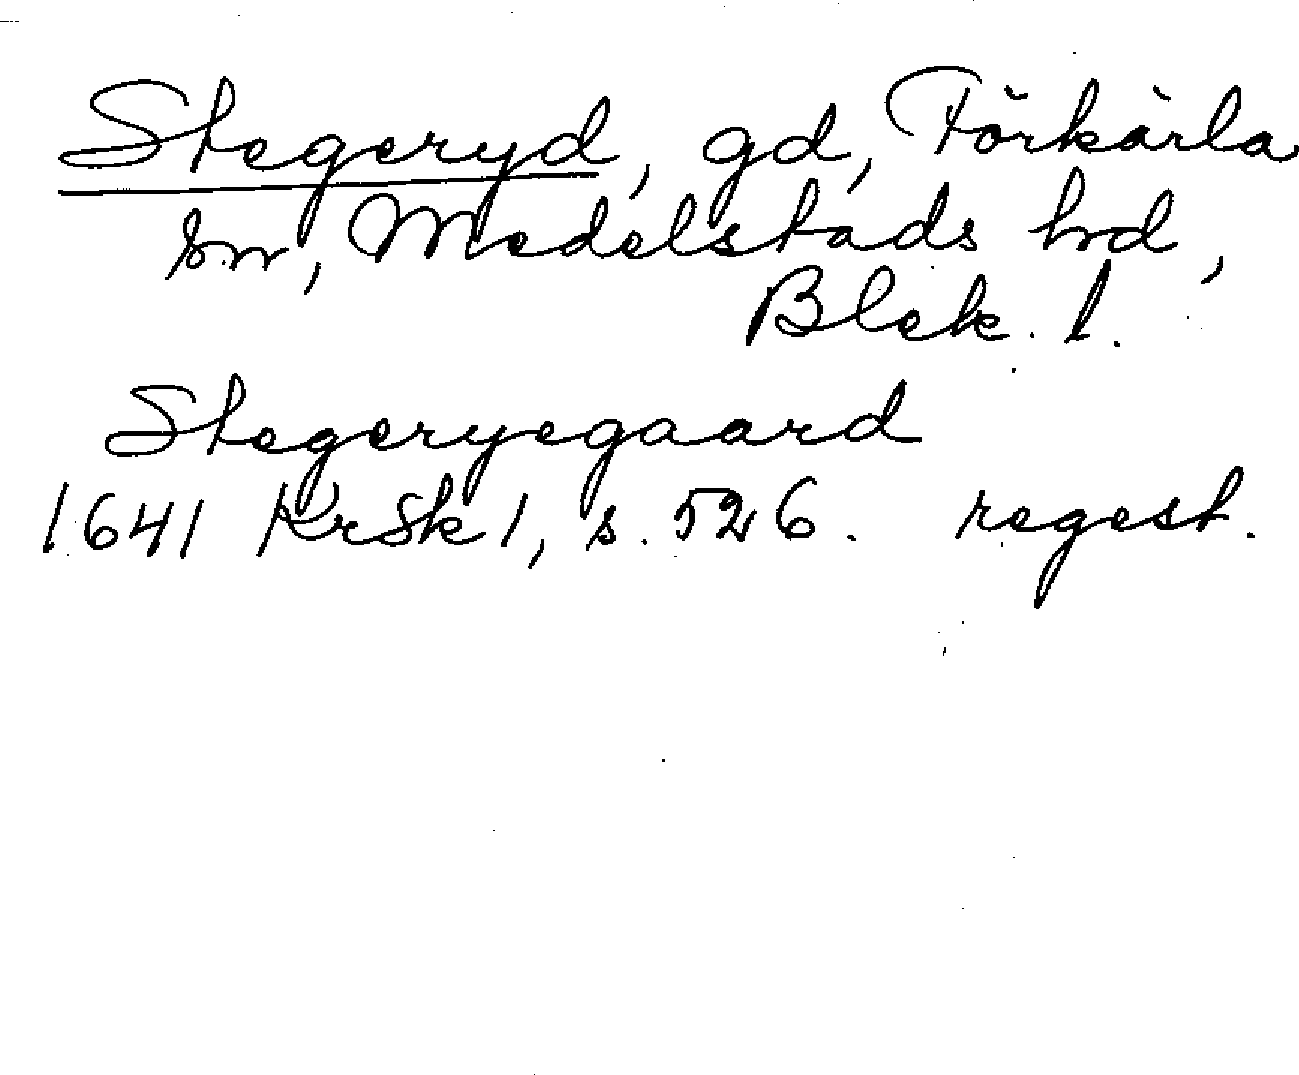 Stegeryd, gd, Förkärla
sn, Medelstads hd,
Blek. l.
Stegeryegaard
1641 KrSk 1, s. 526. regest.